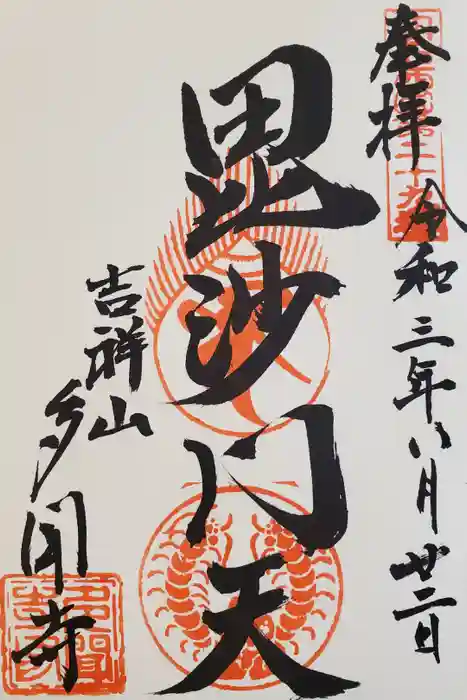 奉拝
令和三年八月廿二日
毘沙門天
吉祥山
多聞寺